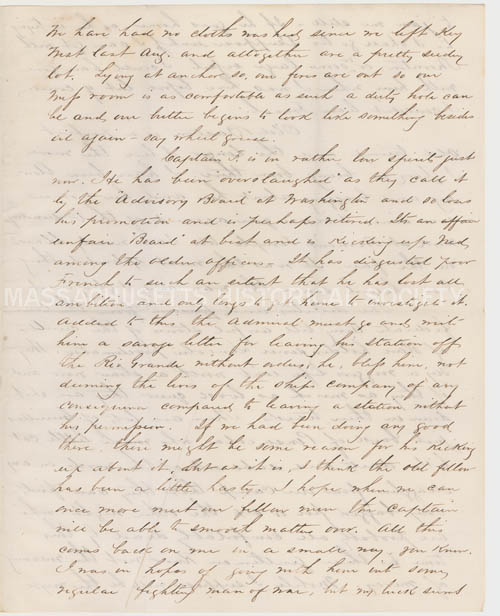 We have had no cloths washed since we left Key
West last Aug. and altogether are a pretty seedy
lot. Lying at anchor so, our fires are out so our
Mess room is as comfortable as such a dirty hole can
be and our butter begins to look like something besides
oil again - say wheel grease.
Captain F. is in rather low spirits just
now. He has been "overslaughed" as they call it
by the "Advisory Board" at Washington and so loses
his promotion and is perhaps retired. It's an
unfair "Board" at best and is kicking up
among the older officers. It has disgusted poor
French to such an extent that he has lost all
ambition and only longs to go home to investigate it.
Added to this the Admiral must go and write
him a savage letter for leaving his station off
the Rio Grande without orders, he, bless him, not
deeming the lives of the ships company of any
consequence compared to leaving a station without
his permission. If we had been doing any good
there, there might be some reason for his kicking
up about it, but as it is, I think the old fellow
has been a little hasty. I hope when we can
once more meet our fellow men the captain
will be able to smooth matters over. All this
comes back on me in a small way, you know.
I was in hopes of going with him into some
regular fighting man of war, but my luck
MASSACHUSETTS HISTORICAL SOCIETY